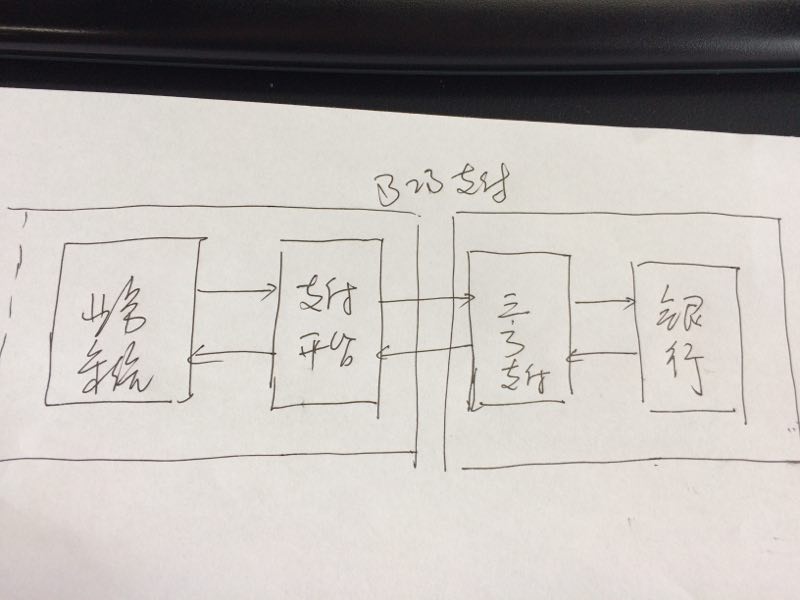 B2B支付
业务
系统
支付
平台
三方
支付
银
行